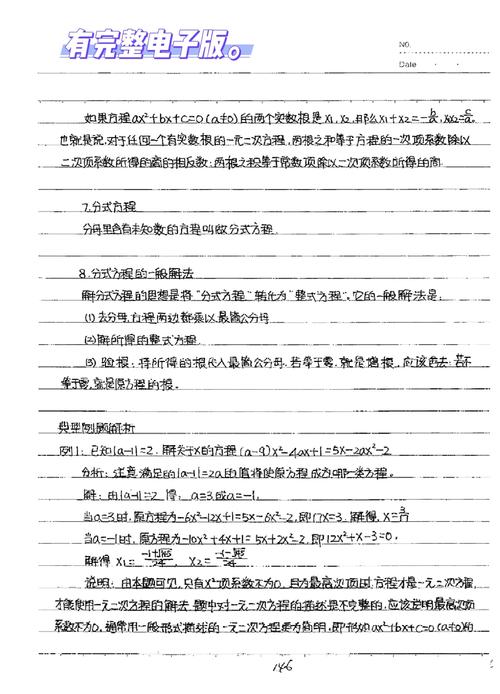 有完整电子版。
NO.
Date
如果方程ax²+bx+c=0(a≠0)的两个实数根是X₁,X₂,那么X₁+X₂=-b/a,X₁X₂=c/a.
也就是说,对于任何一个有实数根的一元二次方程,两根之和等于方程的一次项系数除以
二次项系数所得的商的相反数;两根之积等于常数项除以二次项系数所得的商
7.分式方程
分母里含有未知数的方程叫做分式方程.
8.分式方程的一般解法
解分式方程的思想是将"分式方程"转化为"整式方程".它的一般解法是:
(1)去分母,方程两边都乘以最简公分母
(2)解所得的整式方程
(3)验根:将所得的根代入最简公分母,若等于零,就是增根,应该舍去;若不
等于零,就是原方程的根.
典型例题解析
例1:已知|a-1|=2.解关于X的方程(a-9)X²-4ax+1=5X-2ax²-2
分析:注意满足的|a-1|=2a的值将使原方程成为哪一类方程。
解:由|a-1|=2 得:a=3或a=-1,
当a=3时,原方程为-6X²-12X+1=5X-6X²-2,即17X=3.解得,X=3/17
当a=-1时,原方程为-10X²+4X+1=5X+2X²-2,即12X²+X-3=0,
解得 X₁= X₂=
说明:由本题可见,只有X²项系数不为0,且为最高次项时,方程才是一元二次方程,
才能使用一元二次方程的解法,题中对一元二次方程的描述是不完整的,应该说明最高次项
系数不为0.通常用一般形式描述的一元二次方程更为简明,即形如ax²+bx+c=0(a≠0)的
146